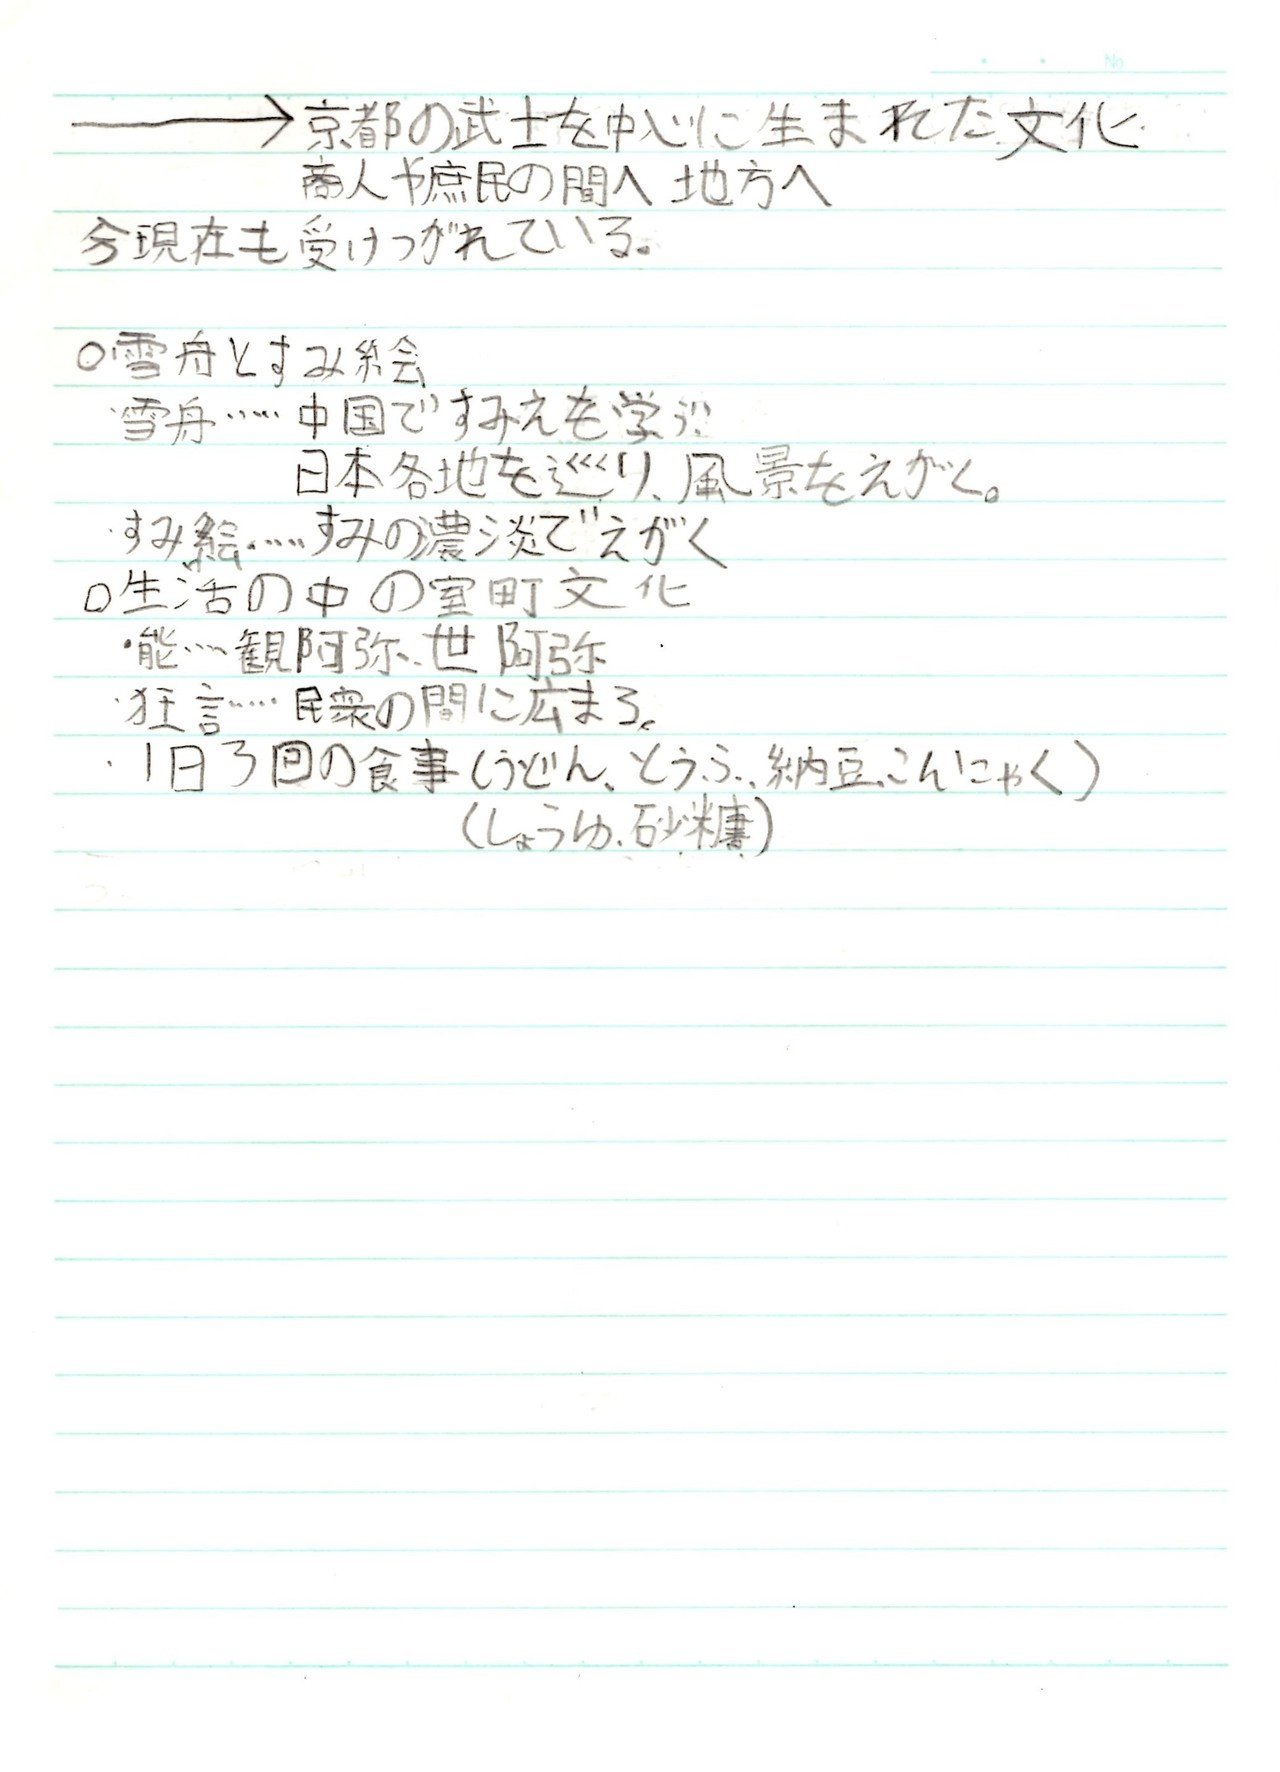 No
→京都の武士を中心に生まれた文化
商人や庶民の間へ 地方へ
今現在も受けつがれている。
○雪舟とすみ絵
・雪舟……中国ですみえを学ぶ
日本各地を巡り、風景をえがく。
・すみ絵……すみの濃淡でえがく
○生活の中の室町文化
・能……観阿弥、世阿弥
・狂言……民衆の間に広まる。
・1日3回の食事(うどん、とうふ、納豆、こんにゃく)
(しょうゆ、砂糖)